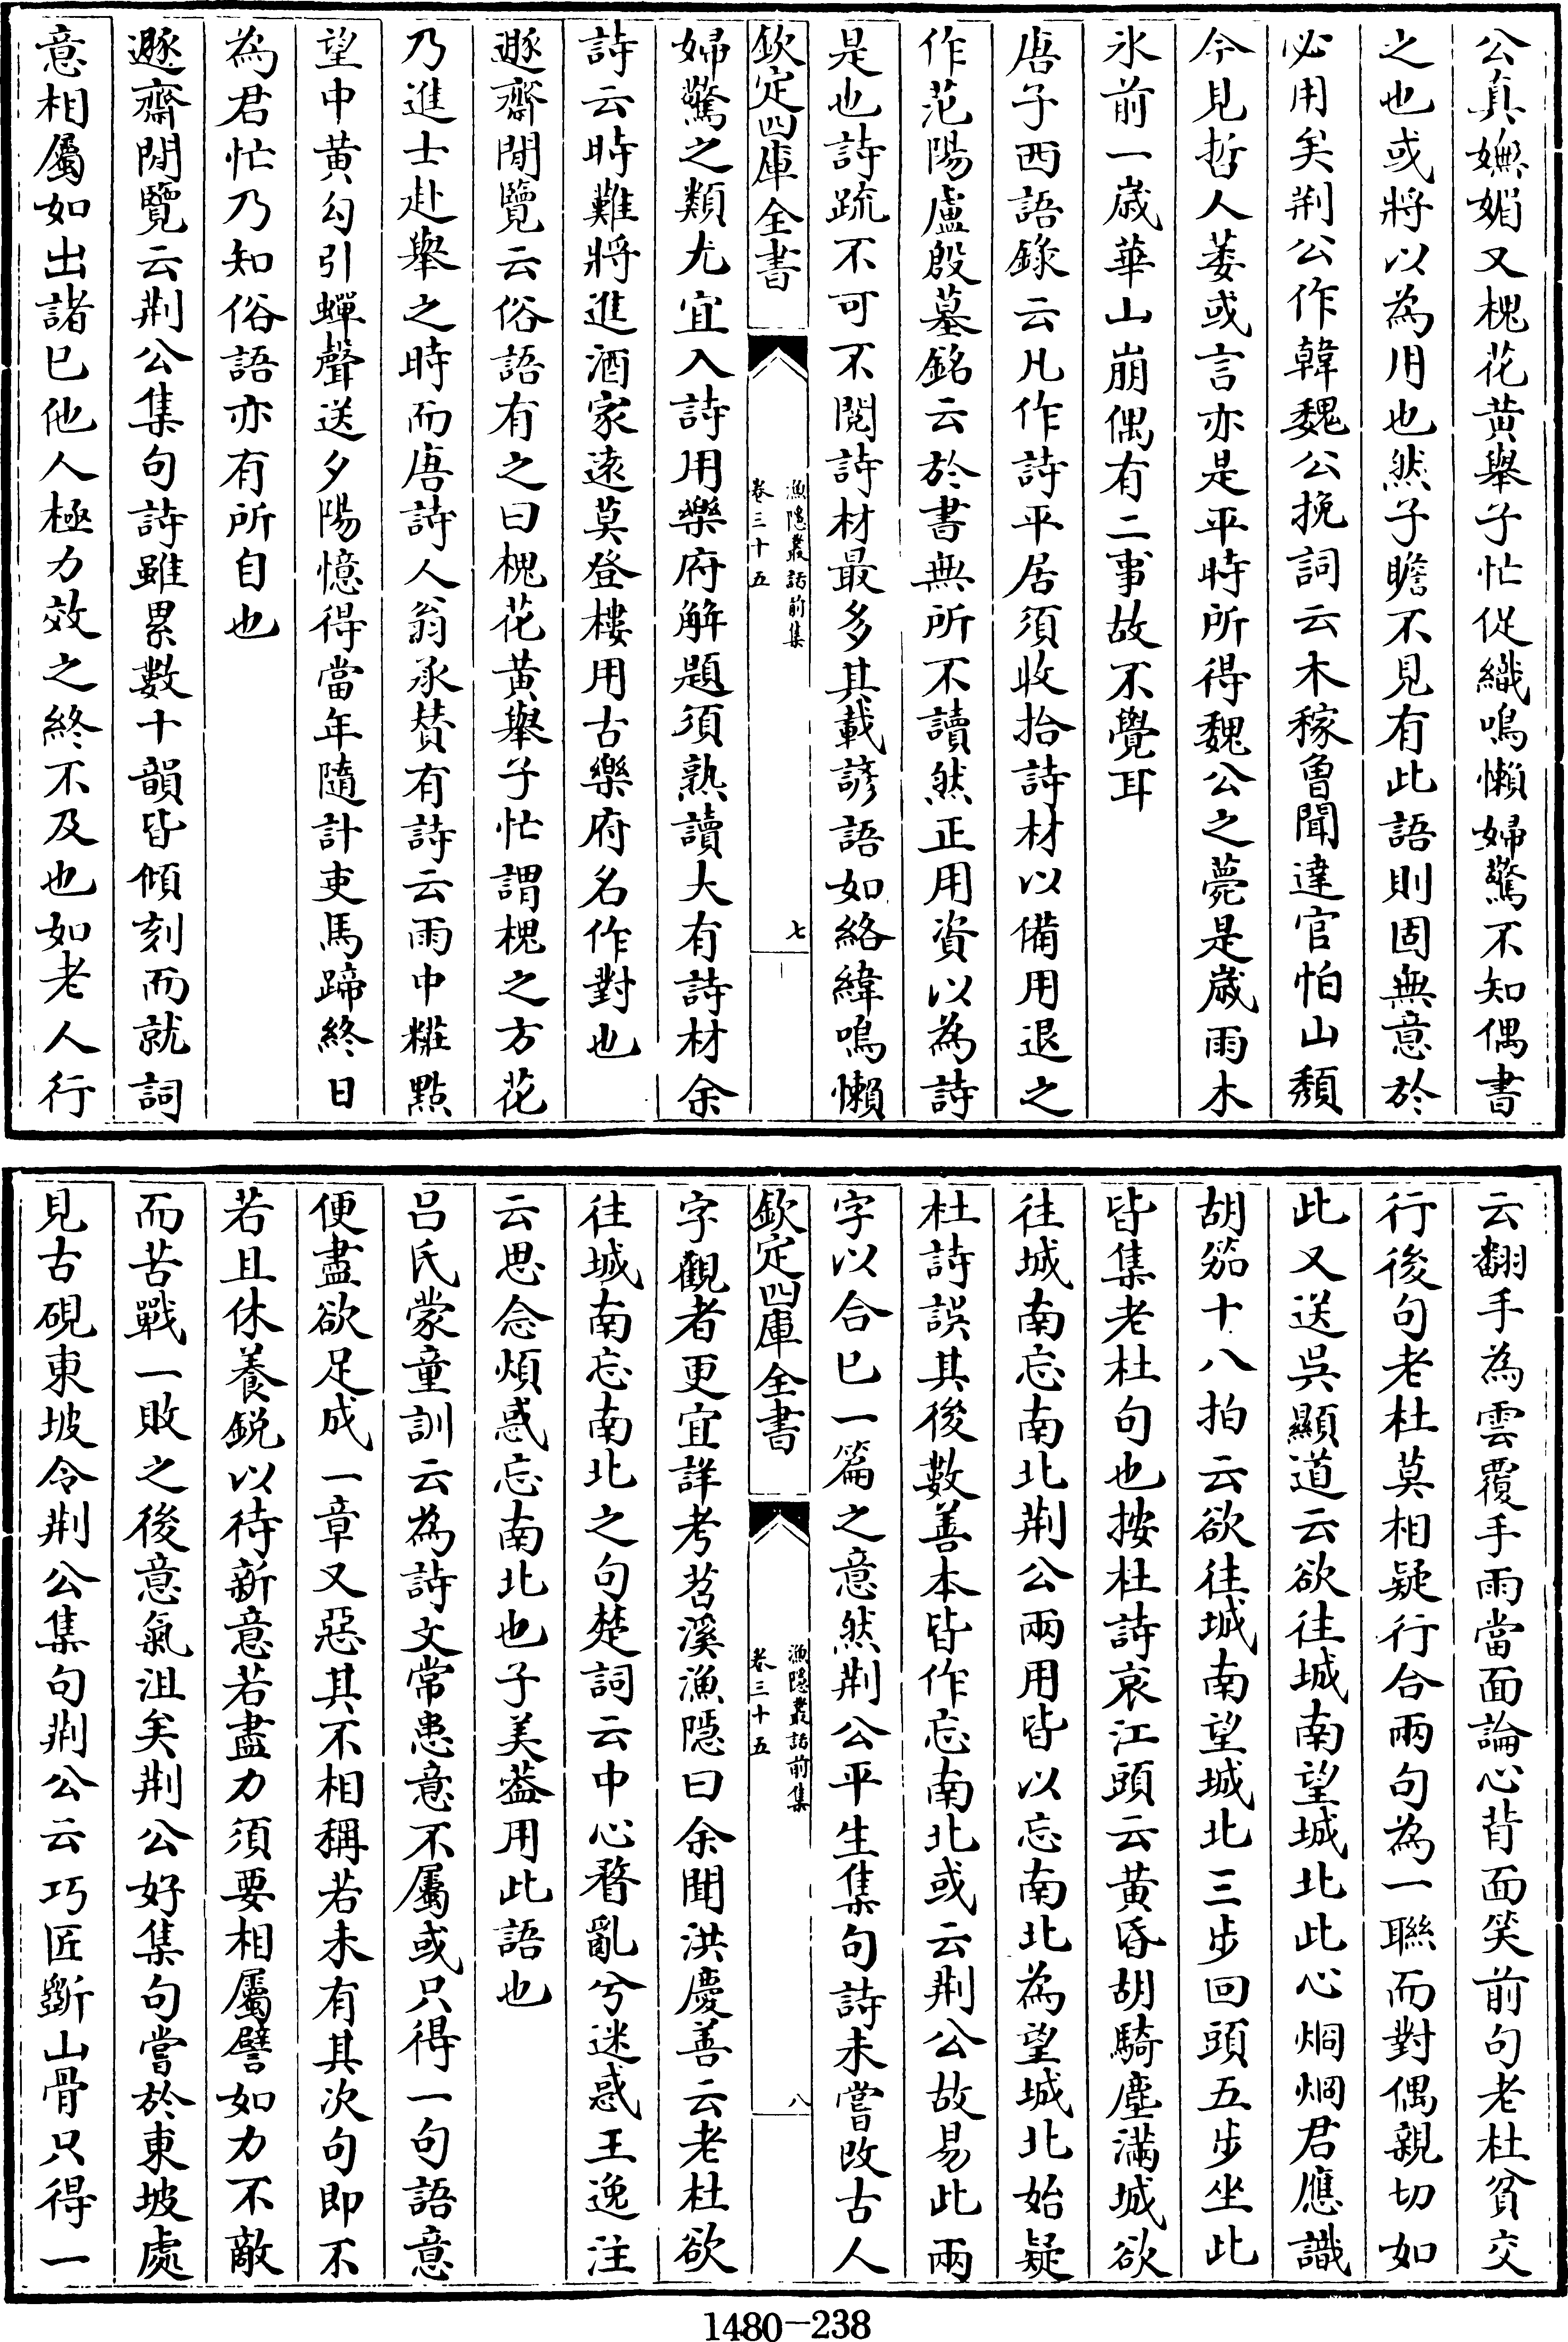 公真嫵媚又槐花黃舉子忙促織鳴懶婦驚不知偶書
之也或將以為用也然子瞻不見有此語則固無意於
必用矣荆公作韓魏公挽詞云木稼曾聞達官怕山頽
今見哲人萎或言亦是平時所得魏公之薨是歲雨木
氷前一歲華山崩偶有二事故不覺耳
唐子西語錄云凡作詩平居須收拾詩材以備用退之
作范陽盧殷墓銘云於書無所不讀然正用資以為詩
是也詩疏不可不閱詩材最多其載諺語如絡緯鳴懶
欽定四庫全書
漁隱叢話前集
卷三十五
七
婦驚之類尤宜入詩用樂府解題須熟讀大有詩材余
詩云時難將進酒家遠莫登樓用古樂府名作對也
遯齋閒覽云俗語有之曰槐花黃舉子忙謂槐之方花
乃進士赴舉之時而唐詩人翁承贊有詩云雨中粧點
望中黃勾引蟬聲送夕陽憶得當年隨計吏馬蹄終日
為君忙乃知俗語亦有所自也
遯齋閒覽云荆公集句詩雖累數十韻皆傾刻而就詞
意相屬如出諸已他人極力效之終不及也如老人行
云翻手為雲覆手雨當面論心背面笑前句老杜貧交
行後句老杜莫相疑行合兩句為一聯而對偶親切如
此又送吳顯道云欲往城南望城北此心炯炯君應識
胡笳十八拍云欲往城南望城北三步回頭五步坐此
皆集老杜句也按杜詩哀江頭云黃昏胡騎塵滿城欲
往城南忘南北荆公兩用皆以忘南北為望城北始疑
杜詩誤其後數善本皆作忘南北或云荆公故易此兩
字以合已一篇之意然荆公平生集句詩未嘗改古人
欽定四庫全書
漁隱叢話前集
卷三十五
八
字觀者更宜詳考苕溪漁隱曰余聞洪慶善云老杜欲
往城南忘南北之句楚詞云中心瞀亂兮迷惑王逸注
云思念煩惑忘南北也子美葢用此語也
吕氏蒙童訓云為詩文常患意不屬或只得一句語意
便盡欲足成一章又惡其不相稱若未有其次句即不
若且休養鋭以待新意若盡力須要相屬譬如力不敵
而苦戰一敗之後意氣沮矣荆公好集句嘗於東坡處
見古硯東坡令荆公集句荆公云巧匠斵山骨只得一
1480—238